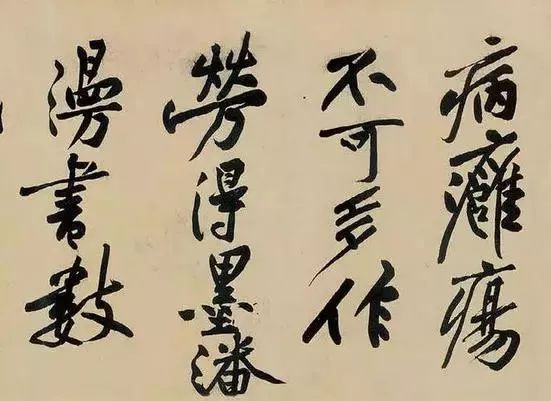 病癰瘍
不可多作
勞得墨潘
漫書數